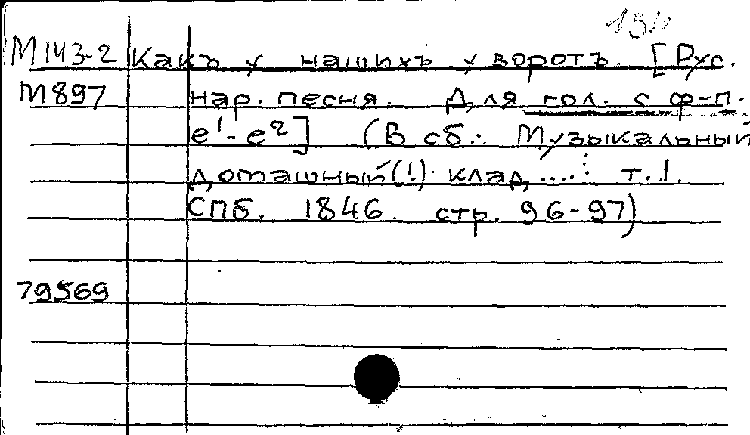 М143-2 Какъ у нашихъ у воротъ. [Рус.
М897 нар. песня. Для гол. с ф-п.
e¹-e²] (В сб.: Музыкальный
домашный(!) клад ....: т.1.
СПб. 1846 стр. 96-97)
79569